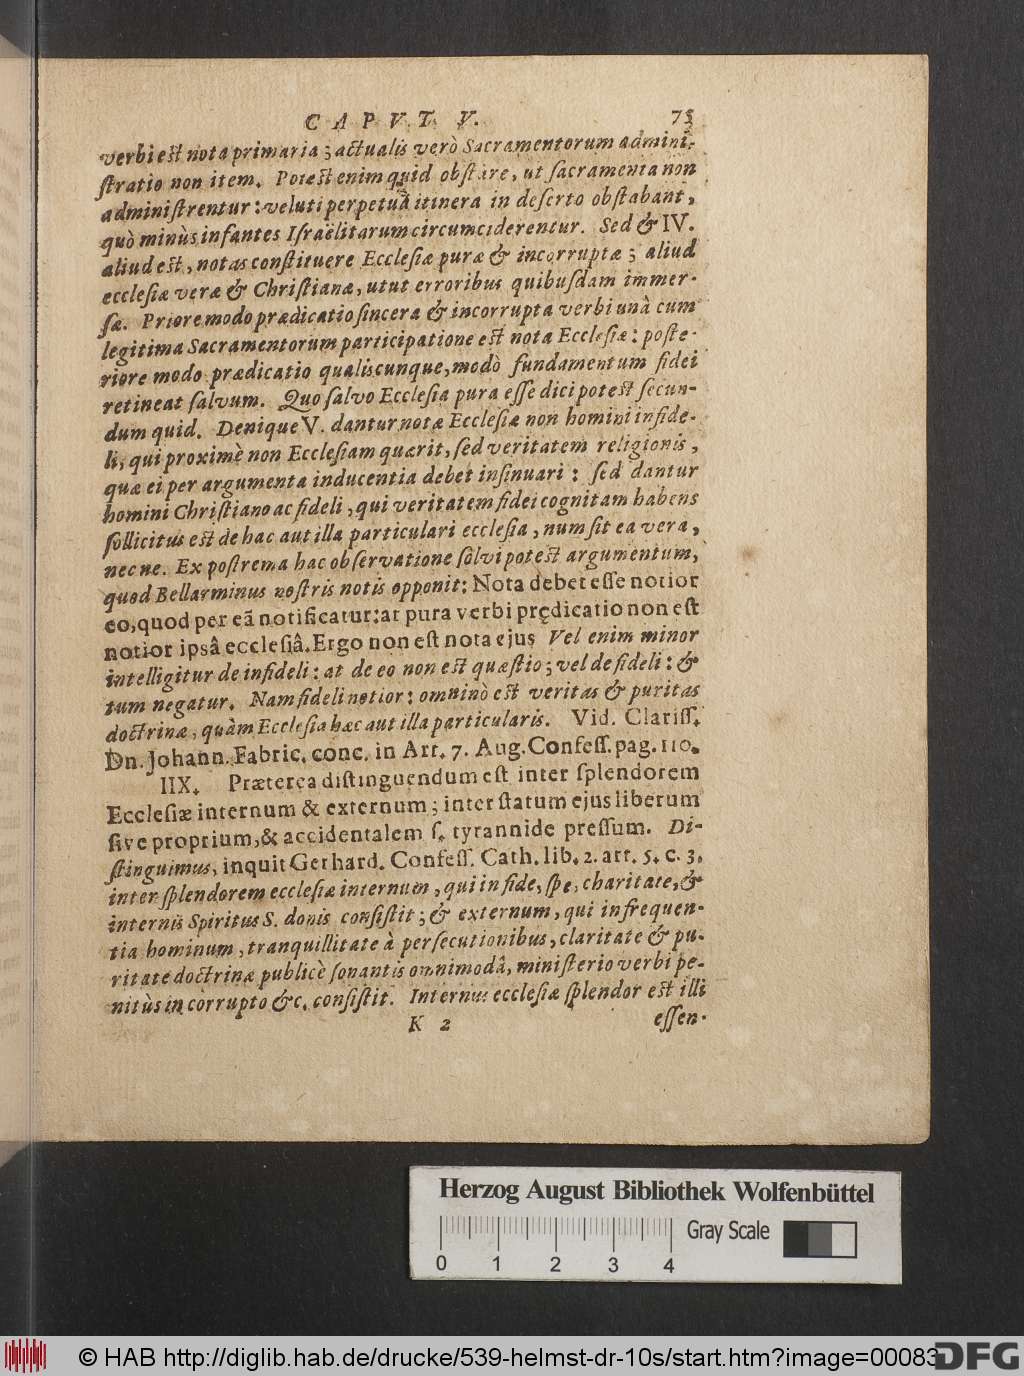 CAPVT. V. 75
verbi est nota primaria; actualis verò Sacramentorum admini-
ſtratio non item. Potest enim quid obſtare, ut ſacramenta non
adminiſtrentur: veluti perpetuâ itinera in deſerto obſtabant,
quò minùs infantes Iſraëlitarum circumciderentur. Sed & IV.
aliud est, notas conſtituere Eccleſiæ puræ & incorruptæ; aliud
eccleſiæ veræ & Chriſtianæ, utut erroribus quibuſdam immer-
ſæ. Priore modo prædicatio ſincera & incorrupta verbi unà cum
legitima Sacramentorum participatione est nota Eccleſiæ: poſte-
riore modo prædicatio qualiscunque, modò fundamentum fidei
retineat ſalvum. Quo ſalvo Eccleſia pura eſſe dici potest ſecun-
dum quid. Denique V. dantur notæ Eccleſiæ non homini infide-
li, qui proximè non Eccleſiam quærit, ſed veritatem religionis,
quæ ei per argumenta inducentia debet inſinuari: ſed dantur
homini Chriſtiano ac fideli, qui veritatem fidei cognitam habens
ſollicitus est de hac aut illa particulari eccleſia, num ſit ea vera,
nec ne. Ex poſtrema hac obſervatione ſolvi potest argumentum,
quod Bellarminus noſtris notis opponit: Nota debet eſſe notior
eo, quod per eã notificatur: at pura verbi prędicatio non eſt
notior ipsâ eccleſiâ. Ergo non eſt nota ejus Vel enim minor
intelligitur de infideli: at de eo non est quæſtio; vel de fideli: &
tum negatur. Nam fideli notior: omninò est veritas & puritas
doctrinæ, quàm Eccleſia hæc aut illa particularis. Vid. Clariſſ.
Dn. Johann. Fabric. conc. in Art. 7. Aug. Confeſſ. pag. 110.
IIX. Præterea diſtinguendum eſt inter ſplendorem
Eccleſiæ internum & externum; inter ſtatum ejus liberum
ſive proprium, & accidentalem ſ. tyrannide preſſum. Di-
ſtinguimus, inquit Gerhard. Confeſſ. Cath. lib. 2. art. 5. c. 3.
inter ſplendorem eccleſiæ internum, qui in fide, ſpe, charitate, &
internis Spiritus S. donis conſiſtit; & externum, qui in frequen-
tia hominum, tranquillitate à perſecutionibus, claritate & pu-
ritate doctrinæ publicè ſonantis omnimodâ, miniſterio verbi pe-
nitùs incorrupto &c. conſiſtit. Internus eccleſiæ ſplendor est illi
K 2 eſſen-
Herzog August Bibliothek Wolfenbüttel
Gray Scale
0 1 2 3 4
© HAB http://diglib.hab.de/drucke/539-helmst-dr-10s/start.htm?image=00083
DFG